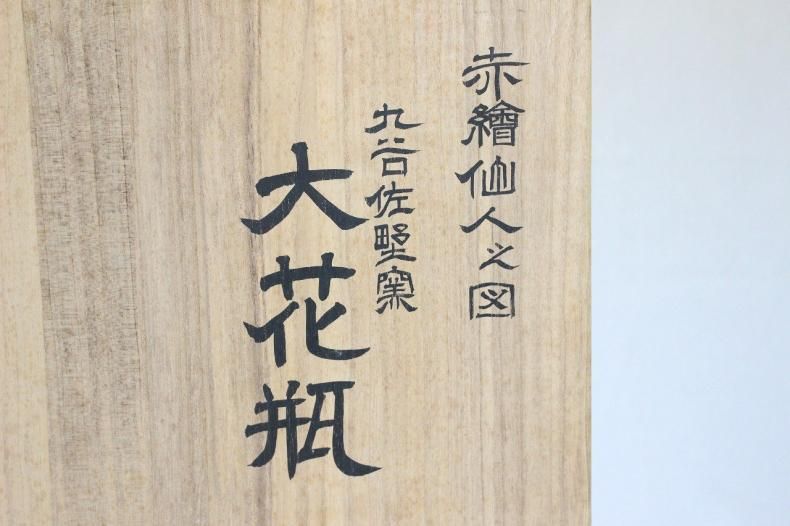 赤繪仙人之図
九谷佐野窯
大花瓶